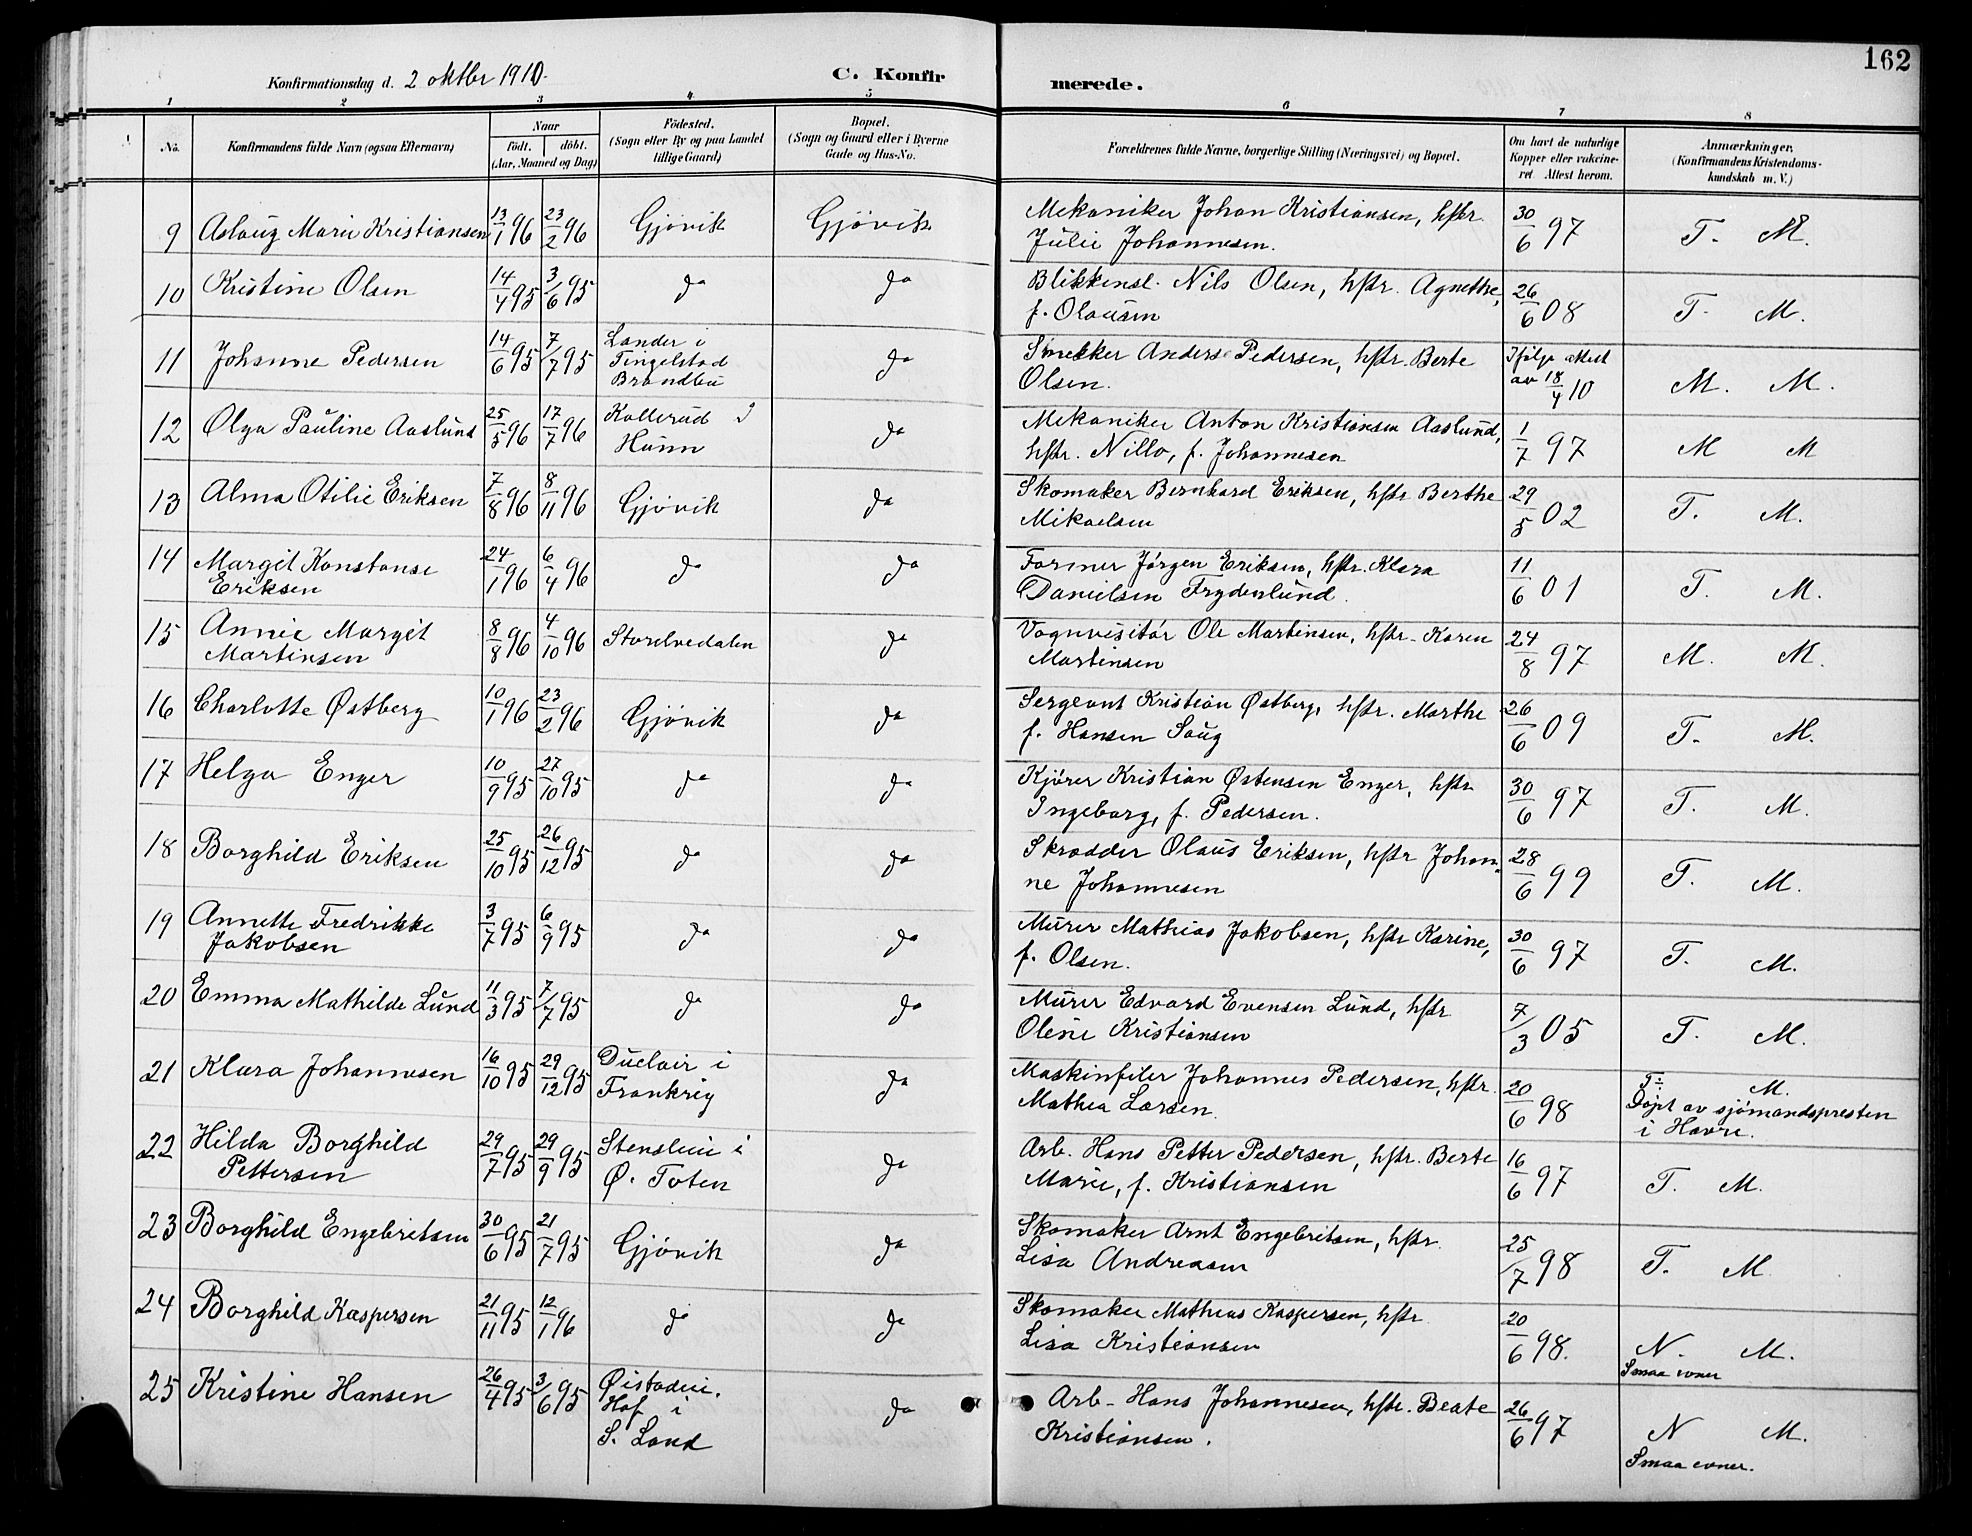 162
Konfirmationsdag d. 2 oktbr 1910.
C. Konfirmerede.
1 2 3 4 5 6 7 8
No.
Konfirmandens fulde Navn (ogsaa Efternavn)
Naar
födt. döbt.
(Aar, Maaned og Dag)
Födested.
(Sogn eller By og paa Landet
tillige Gaard)
Bopæl.
(Sogn og Gaard eller i Byerne
Gade og Hus-No.
Forældrenes fulde Navne, borgerlige Stilling (Næringsvei) og Bopæl.
Om havt de naturlige
Kopper eller vakcine-
ret Attest herom.
Anmærkninger.
(Konfirmandens Kristendoms-
kundskab m. V.)
9 Aslaug Marie Kristiansen 13/1 96 23/2 96 Gjövik Gjövik Mekaniker Johan Kristiansen, hstr. 30/6 97 T. M.
Julie Johannesen.
10 Kristine Olsen 14/4 95 3/6 95 do do Blikkensl. Nils Olsen, hstr. Agnethe, 26/6 08 T. M.
f. Olausen
11 Johanne Pedersen 14/6 95 7/7 95 Lander i do Snekker Anders Pedersen, hstr. Berte Ifølge attest
Tingelstad Olsen. av 18/4 10 M. M.
Brandbu
12 Olga Pauline Aaslund 25/5 96 17/7 96 Kallerud i do Mekaniker Anton Kristiansen Aaslund, 1/7 97 M M
Hunn hstr. Nilla, f. Johannesen
13 Alma Otilie Eriksen 7/8 96 8/11 96 Gjövik do Skomaker Bernhard Eriksen, hstr Berthe 29/5 02 T. M.
Mikaelsen
14 Margit Konstanse 24/1 96 6/4 96 do do Former Jörgen Eriksen, hstr. Klara 11/6 01 T. M.
Eriksen Danielsen Frydenlund.
15 Annie Margit 8/8 96 4/10 96 Storelvedalen do Vognvisitör Ole Martinsen, hstr. Karen 24/8 97 M. M.
Martinsen Martinsen
16 Charlotte Østberg 10/1 96 23/2 96 Gjövik do Sergeant Kristian Østberg, hstr. Marthe 26/6 09 T. M.
f. Hansen Saug
17 Helga Enger 10/9 95 27/10 95 do do Kjörer Kristian Østensen Enger, hstr 30/6 97 T. M.
Ingeborg, f. Pedersen.
18 Borghild Eriksen 25/10 95 26/12 95 do do Skrædder Olaus Eriksen, hstr Johan- 28/6 99 T. M.
ne Johannesen
19 Annette Fredrikke 3/7 95 6/9 95 do do Murer Mathias Jakobsen, hstr Karine, 30/6 97 T. M.
Jakobsen f. Olsen.
20 Emma Mathilde Lund 11/3 95 7/7 95 do do Murer Edvard Evensen Lund, hstr 7/3 05 T. M.
Oline Kristiansen
21 Klara Johannesen 16/10 95 29/12 95 Duclair i do Maskinfiler Johannes Pedersen, hstr. 20/6 98 T÷ M.
Frankrig Mathea Larsen. Døpt av sjömandspresten
i Havre.
22 Hilda Borghild 29/7 95 29/9 95 do Arb. Hans Petter Pedersen, hstr. Berte 16/6 97 T. M.
Pettersen Ø. Toten Marie, f. Kristiansen
23 Borghild Engebritsen 30/6 95 21/7 95 Gjövik do Skomaker Arnt Engebritsen, hstr. 25/7 98 T. M.
Lisa Andreasen
24 Borghild Kaspersen 21/11 95 12/1 96 do do Skomaker Mathias Kaspersen, hstr 20/6 98. N. M.
Lisa Kristiansen Smaa evner
25 Kristine Hansen 26/4 95 3/6 95 do Arb. Hans Johannesen, hstr. Beate 26/6 97 N M.
Hof i Kristiansen.
S. Land Smaa evner.